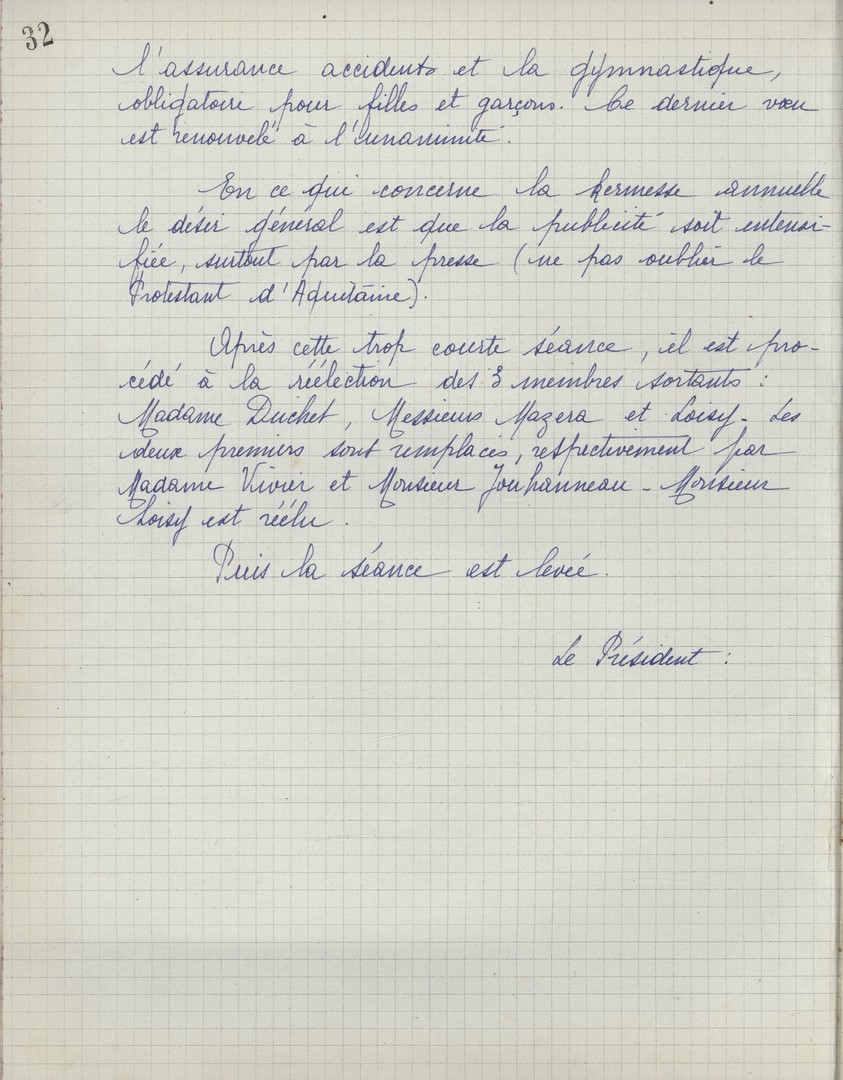 32
l'assurance accidents et la gymnastique,
obligatoire pour filles et garçons. Ce dernier vœu
est renouvelé à l'unanimité.
En ce qui concerne la kermesse annuelle
le désir général est que la publicité soit intensi-
fiée, surtout par la presse (ne pas oublier le
Protestant d'Aquitaine).
Après cette trop courte séance, il est pro-
cédé à la réélection des 3 membres sortants :
Madame Duchet, Messieurs Mazera et Loisy - Les
deux premiers sont remplacés, respectivement par
Madame Vivier et Monsieur Jouhanneau - Monsieur
Loisy est réélu.
Puis la séance est levée.
Le Président :